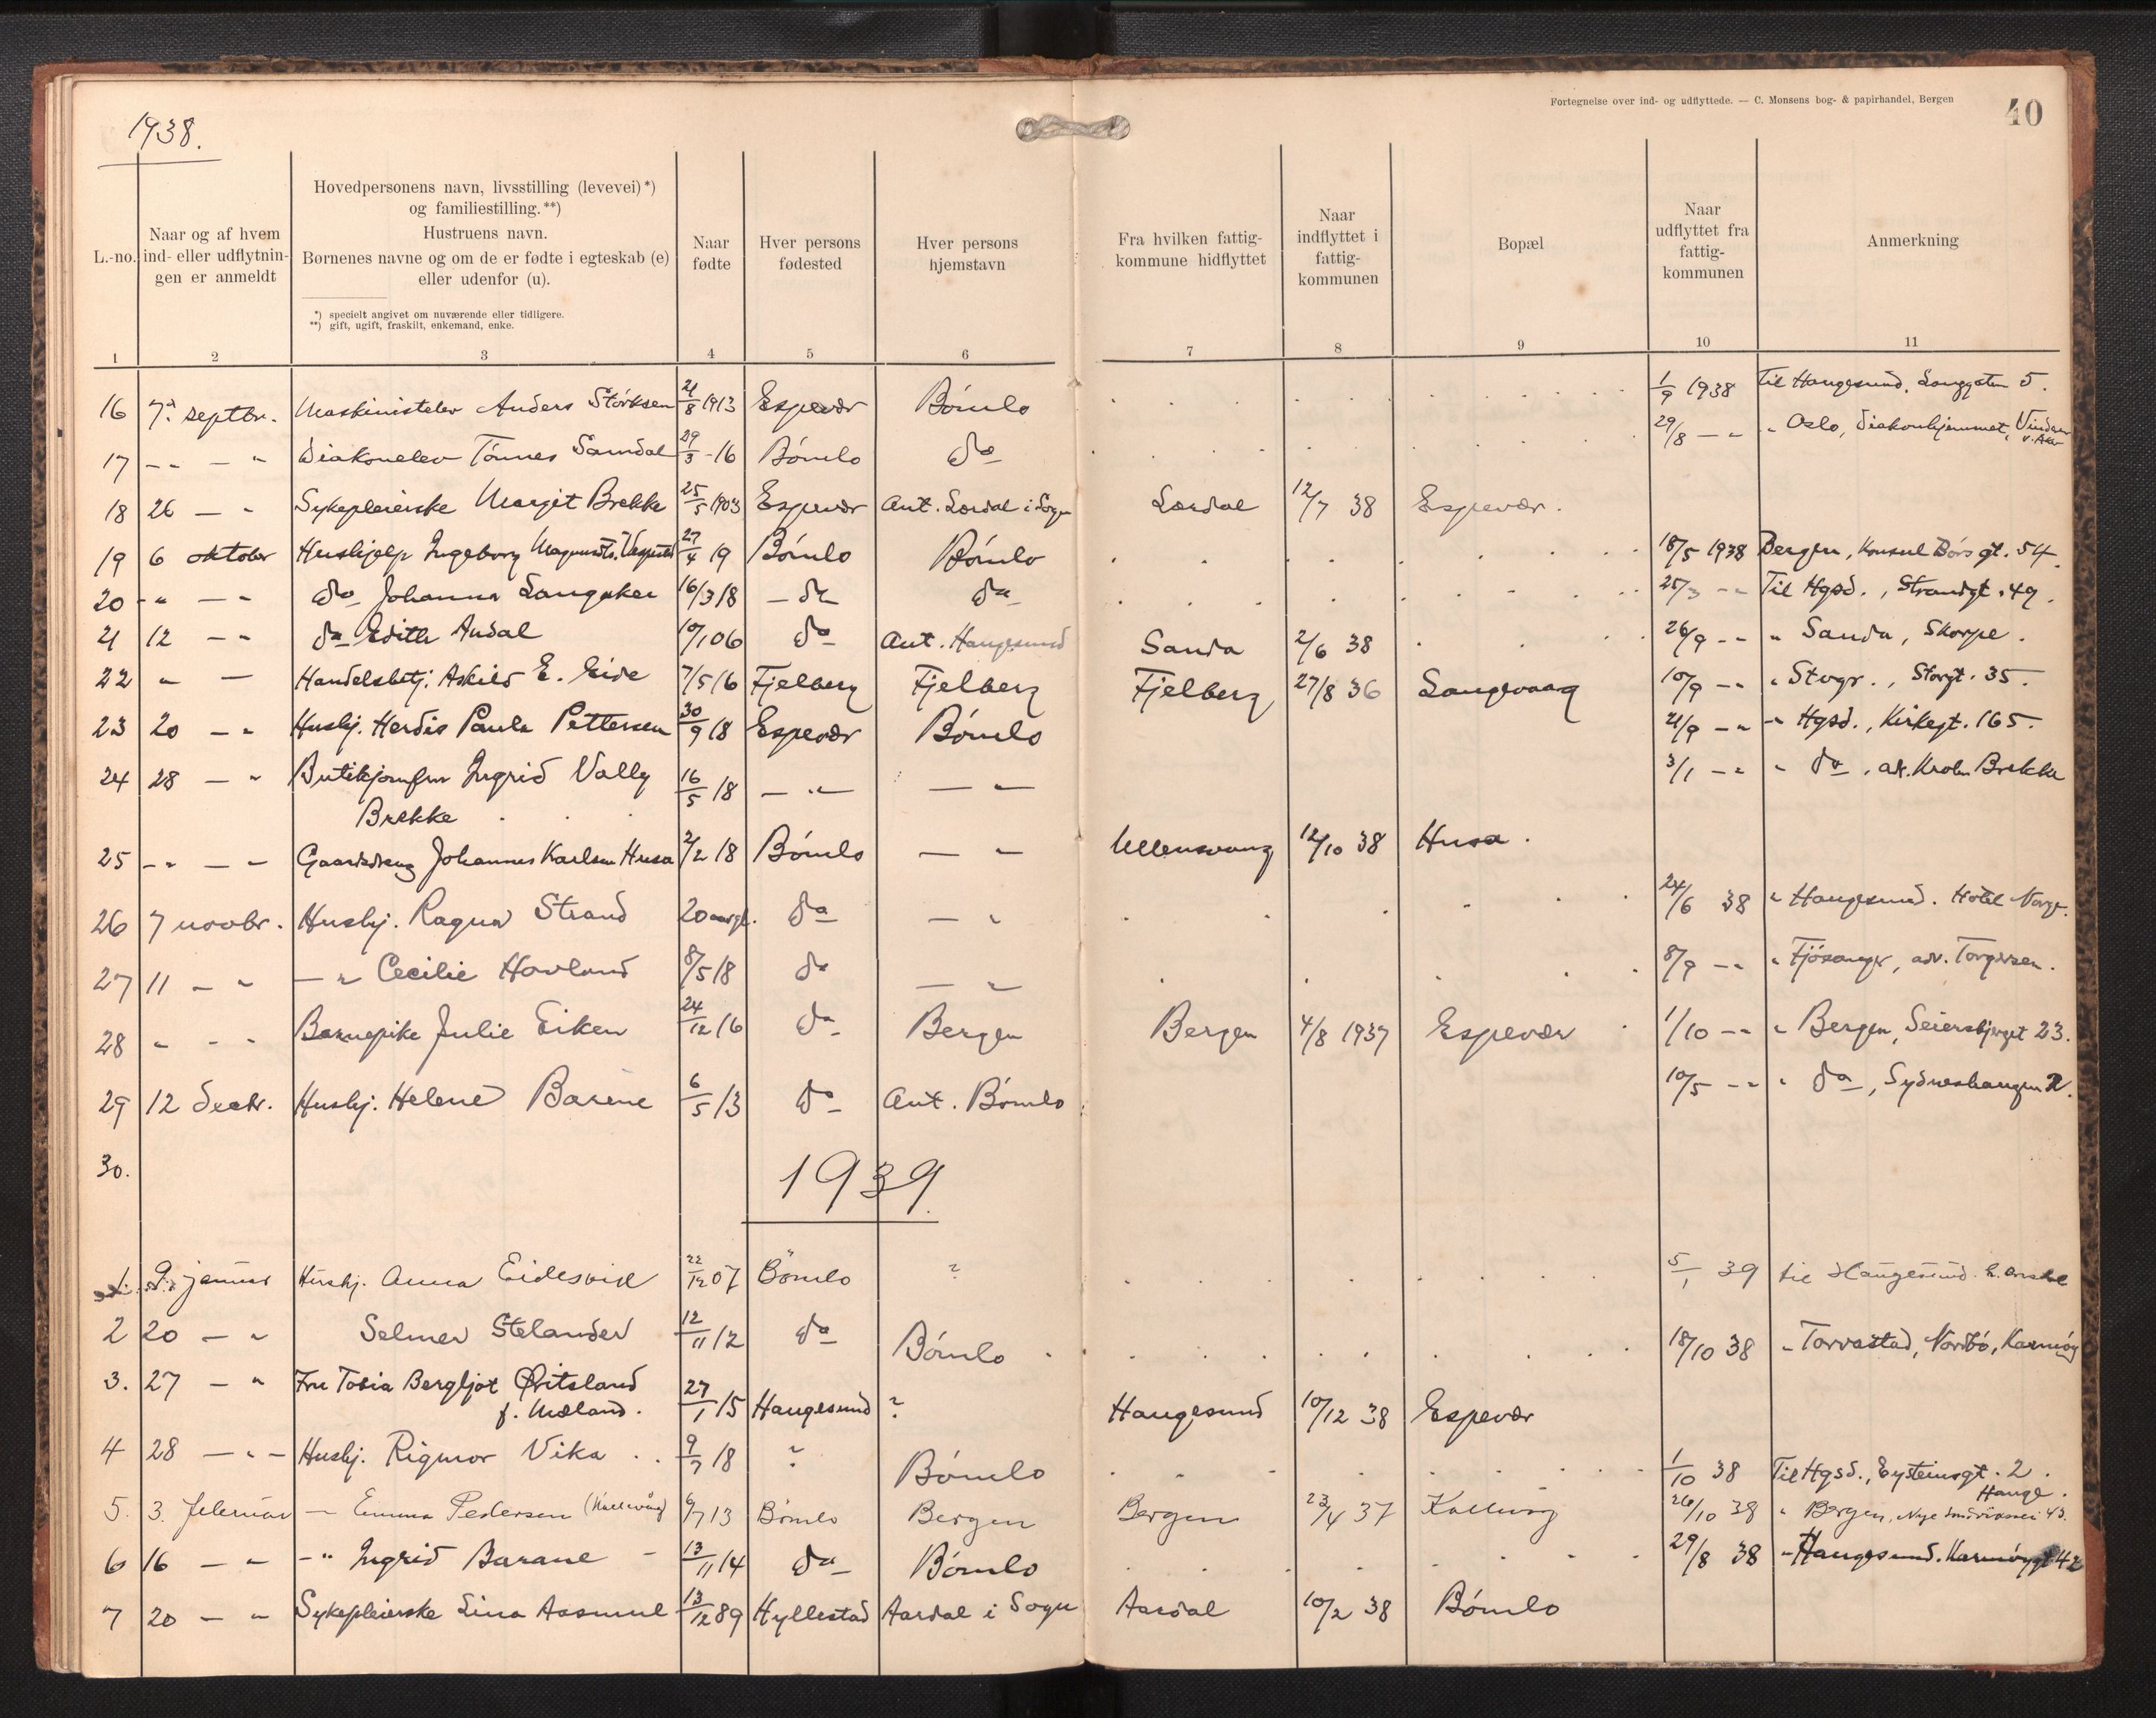 Fortegnelse over ind- og udflyttede. — C. Monsens bog- & papirhandel, Bergen
40
1938.
L.-no.
Naar og af hvem
ind- eller udflytnin-
gen er anmeldt
Hovedpersonens navn, livsstilling (levevei)*)
og familiestilling.**)
Hustruens navn.
Børnenes navne og om de er fødte i egteskab (e)
eller udenfor (u).
*) specielt angivet om nuværende eller tidligere.
**) gift, ugift, fraskilt, enkemand, enke.
Naar
fødte
Hver persons
fødested
Hver persons
hjemstavn
Fra hvilken fattig-
kommune hidflyttet
Naar
indflyttet i
fattig-
kommunen
Bopæl
Naar
udflyttet fra
fattig-
kommunen
Anmerkning
1 2 3 4 5 6 7 8 9 10 11
16 7. septbr. Maskinistelev Anders Störksen 21/8 1913 Espevær Bömlo 1/9 1938 Til Haugesund, 5.
17 -"- - " Diakonelev Tönnes Samdal 29/3 -16 Bömlo do 29/8 - " " Oslo, Diakonhjemmet, Vinderen v. Aker
18 26 - " Sykepleierske Margit Brekke 25/5 1903 Espevær Ant. Lærdal i Sogn Lærdal 12/7 38 Espevær.
19 6 oktober Hushjelp Ingeborg 27/4 19 Bömlo Bömlo 18/5 1938 Bergen, Konsul Börs gt. 54.
20 -" - " do Johanna Langaker 16/3 18 - do do 25/3 - " Til Hgsd., Strandgt. 49.
21 12 - " do Edith Audal 19/1 06 do Ant. Haugesund Sanda 2/6 38 26/9 - " " Sanda, Skorpe.
22 " - Handelsbetj. Askild E. Eide 7/5 16 Fjelberg Fjelberg Fjelberg 27/8 36 Langevaag 10/9 - " " Stvgr., Storgt. 35.
23 20 - " Hushj. Herdis Paula Pettersen 30/9 18 Espevær Bömlo 21/9 - " " Hgsd., Kirkegt. 165.
24 28 - " Butikjomfru Ingrid Vally 16/5 18 - " - - " 3/1 - " " do, Brekke
Brekke
25 -" - " Gaardsdreng Johannes Karlsen Husa 2/2 18 Bömlo - " Ullensvang 12/10 38 Husa.
26 7 novbr. Hushj. Ragna Strand 20 aargl. do - " 24/6 38 " Haugesund. Hotel Norge.
27 11 - " - " Cecilie Hovland 8/5 18 do - " 8/9 - " " Fjösanger, adv. Torgersen.
28 " - " Barnepike Julie Eiken 24/12 16 do Bergen Bergen 4/8 1937 Espevær 1/10 - " " Bergen, Seiersbjerget 23.
29 12 decbr. Hushj. Helene Barane 6/5 13 do Ant. Bömlo 10/5 - " " do, Sydneshaugen 2.
30.
1939.
1. 9. januar Hushj. Anna Eidesvik 22/12 07 Bömlo ? 5/1 39 til Haugesund.
2 20 - " Selmer Stelander 12/11 12 do Bömlo 18/10 38 " Torvastad, Nordbö, Karmöy
3. 27 - " Fru Tobia Bergljot Øritsland 27/1 15 Haugesund ? Haugesund 10/12 38 Espevær
f. Mæland.
4 28 - " - Hushj. Rigmor Vika 9/7 18 ? Bömlo 1/10 38 Til Hgsd., Eysteinsgt. 2.
Hauge.
5. 3. februar - Emma Pedersen (Kallevåg) 6/7 13 Bömlo Bergen Bergen 23/4 37 Kallevåg 26/10 38 " Bergen, Nye 43.
6 16 - " - " Ingrid Barane - 13/11 14 do Bömlo 29/8 38 " Haugesund. Karmöygt 42
7 20 - " Sykepleierske Lina Assmul 13/12 89 Hyllestad Aardal i Sogn Aardal 10/2 38 Bömlo